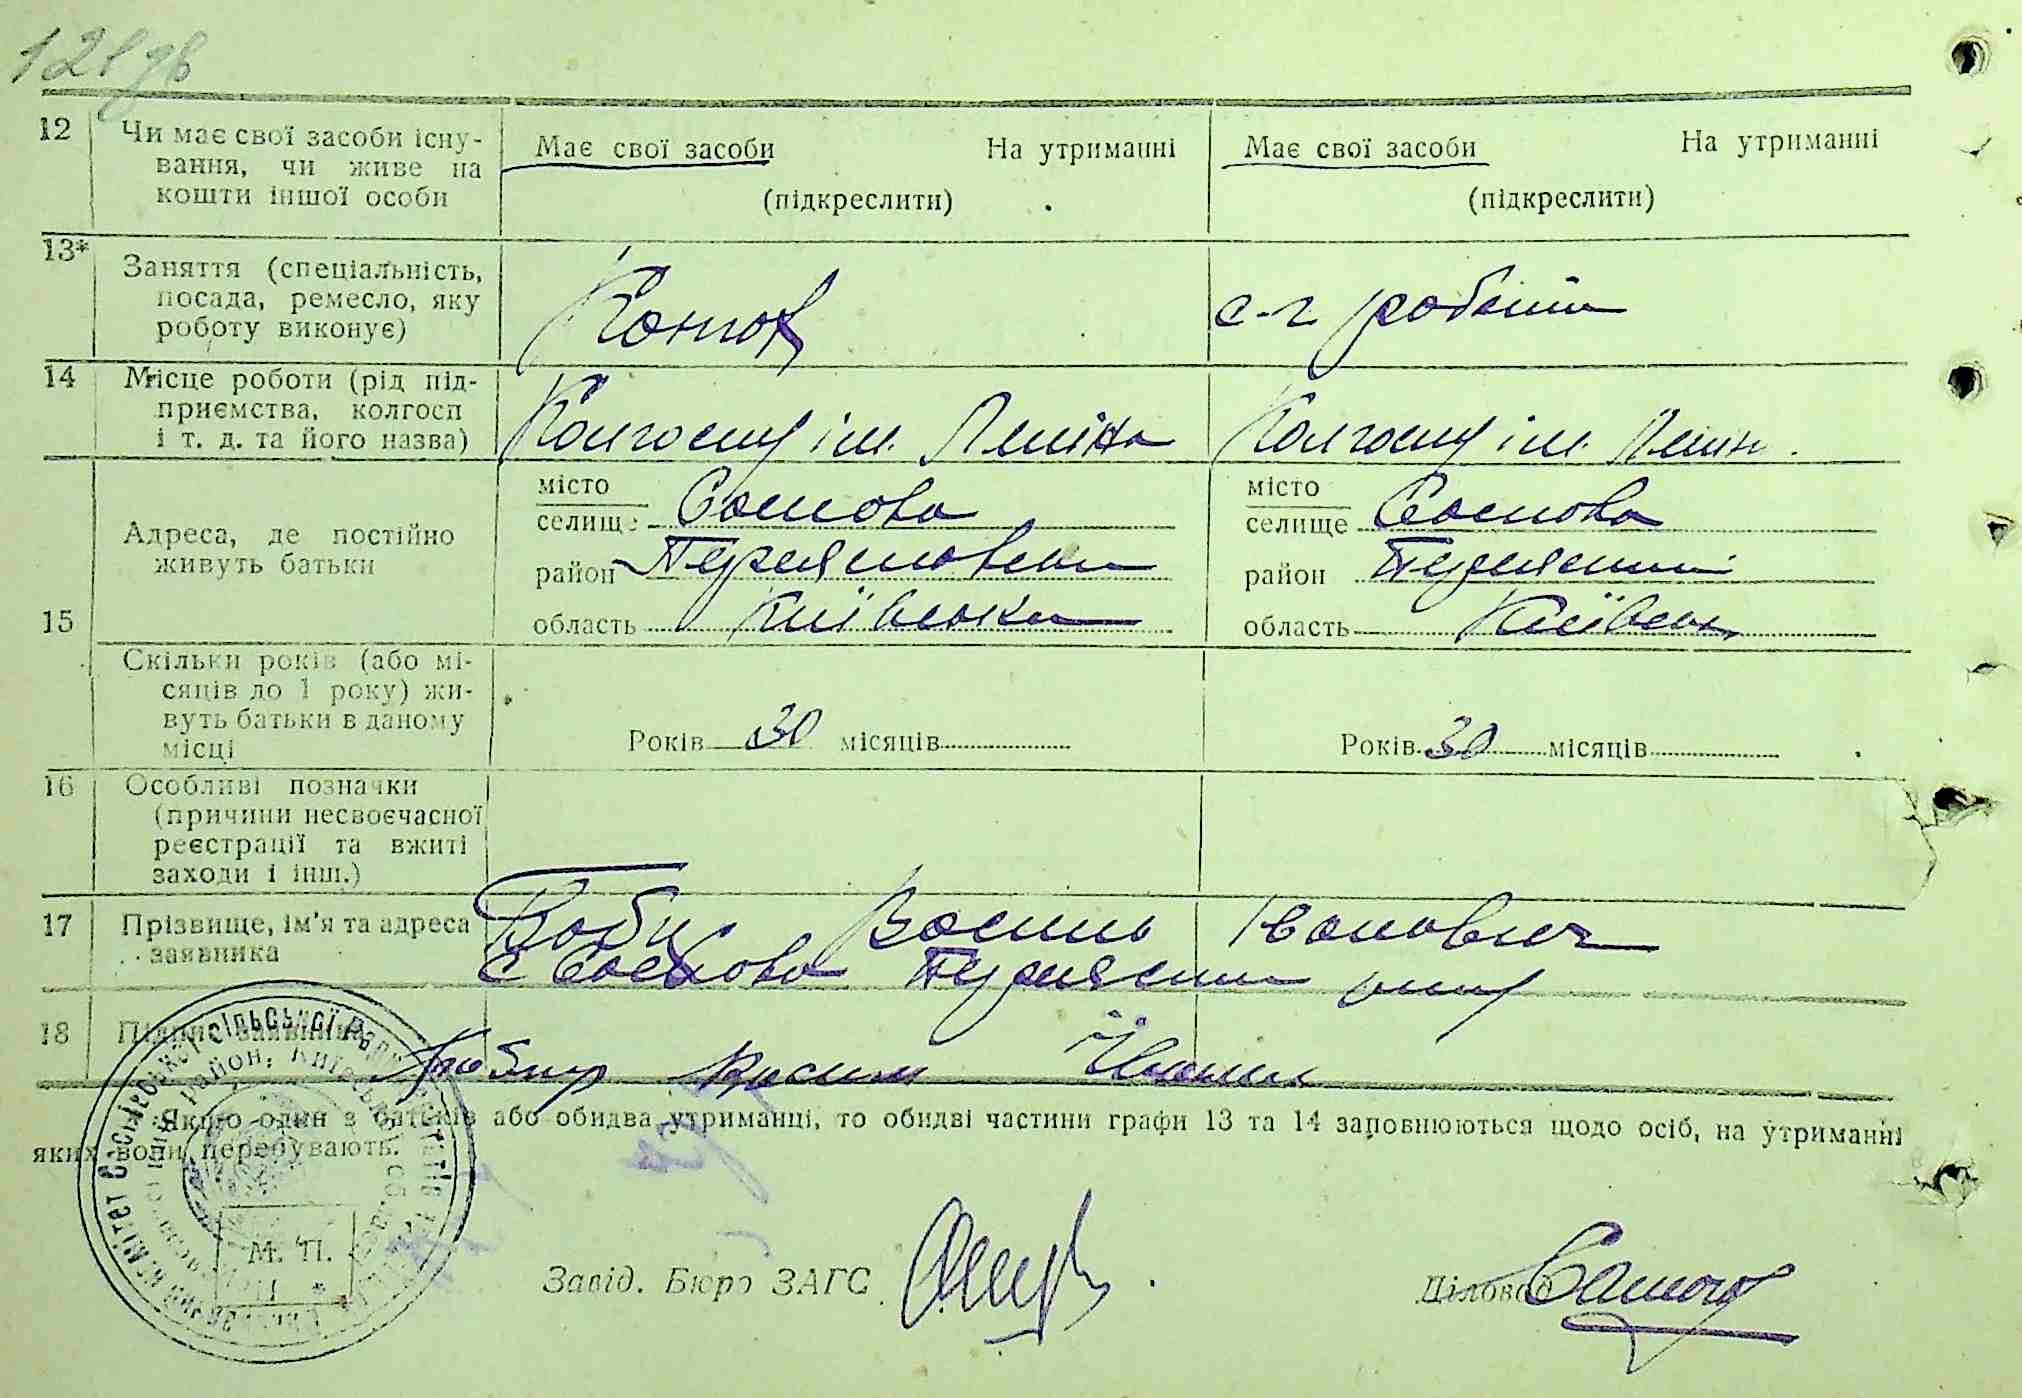 12
Чи має свої засоби існу-
вання, чи живе на
кошти іншої особи
Має свої засоби На утриманні
(підкреслити)
Має свої засоби На утриманні
(підкреслити)
13*
Заняття (спеціальність,
посада, ремесло, яку
роботу виконує)
Конюх
с-г робітн
14
Місце роботи (рід під-
приємства, колгосп
і т. д. та його назва)
Колгосп ім. Леніна
Колгосп ім. Леніна
15
Адреса, де постійно
живуть батьки
місто
селище Соснова
район Переяславськ
область Київська
місто
селище Соснова
район Переяславський
область Київськ
Скільки років (або мі-
сяців до 1 року) жи-
вуть батьки в даному
місці
Років 30 місяців
Років 30 місяців
16
Особливі позначки
(причини несвоєчасної
реєстрації та вжиті
заходи і інш.)
17
Прізвище, ім'я та адреса
заявника
Василь Іванович
с Соснова
18
Підпис заявника
Якщо один з батьків або обидва утриманці, то обидві частини графи 13 та 14 заповнюються щодо осіб, на утриманні
яких вони перебувають.
М. П.
Завід. Бюро ЗАГС
Діловод